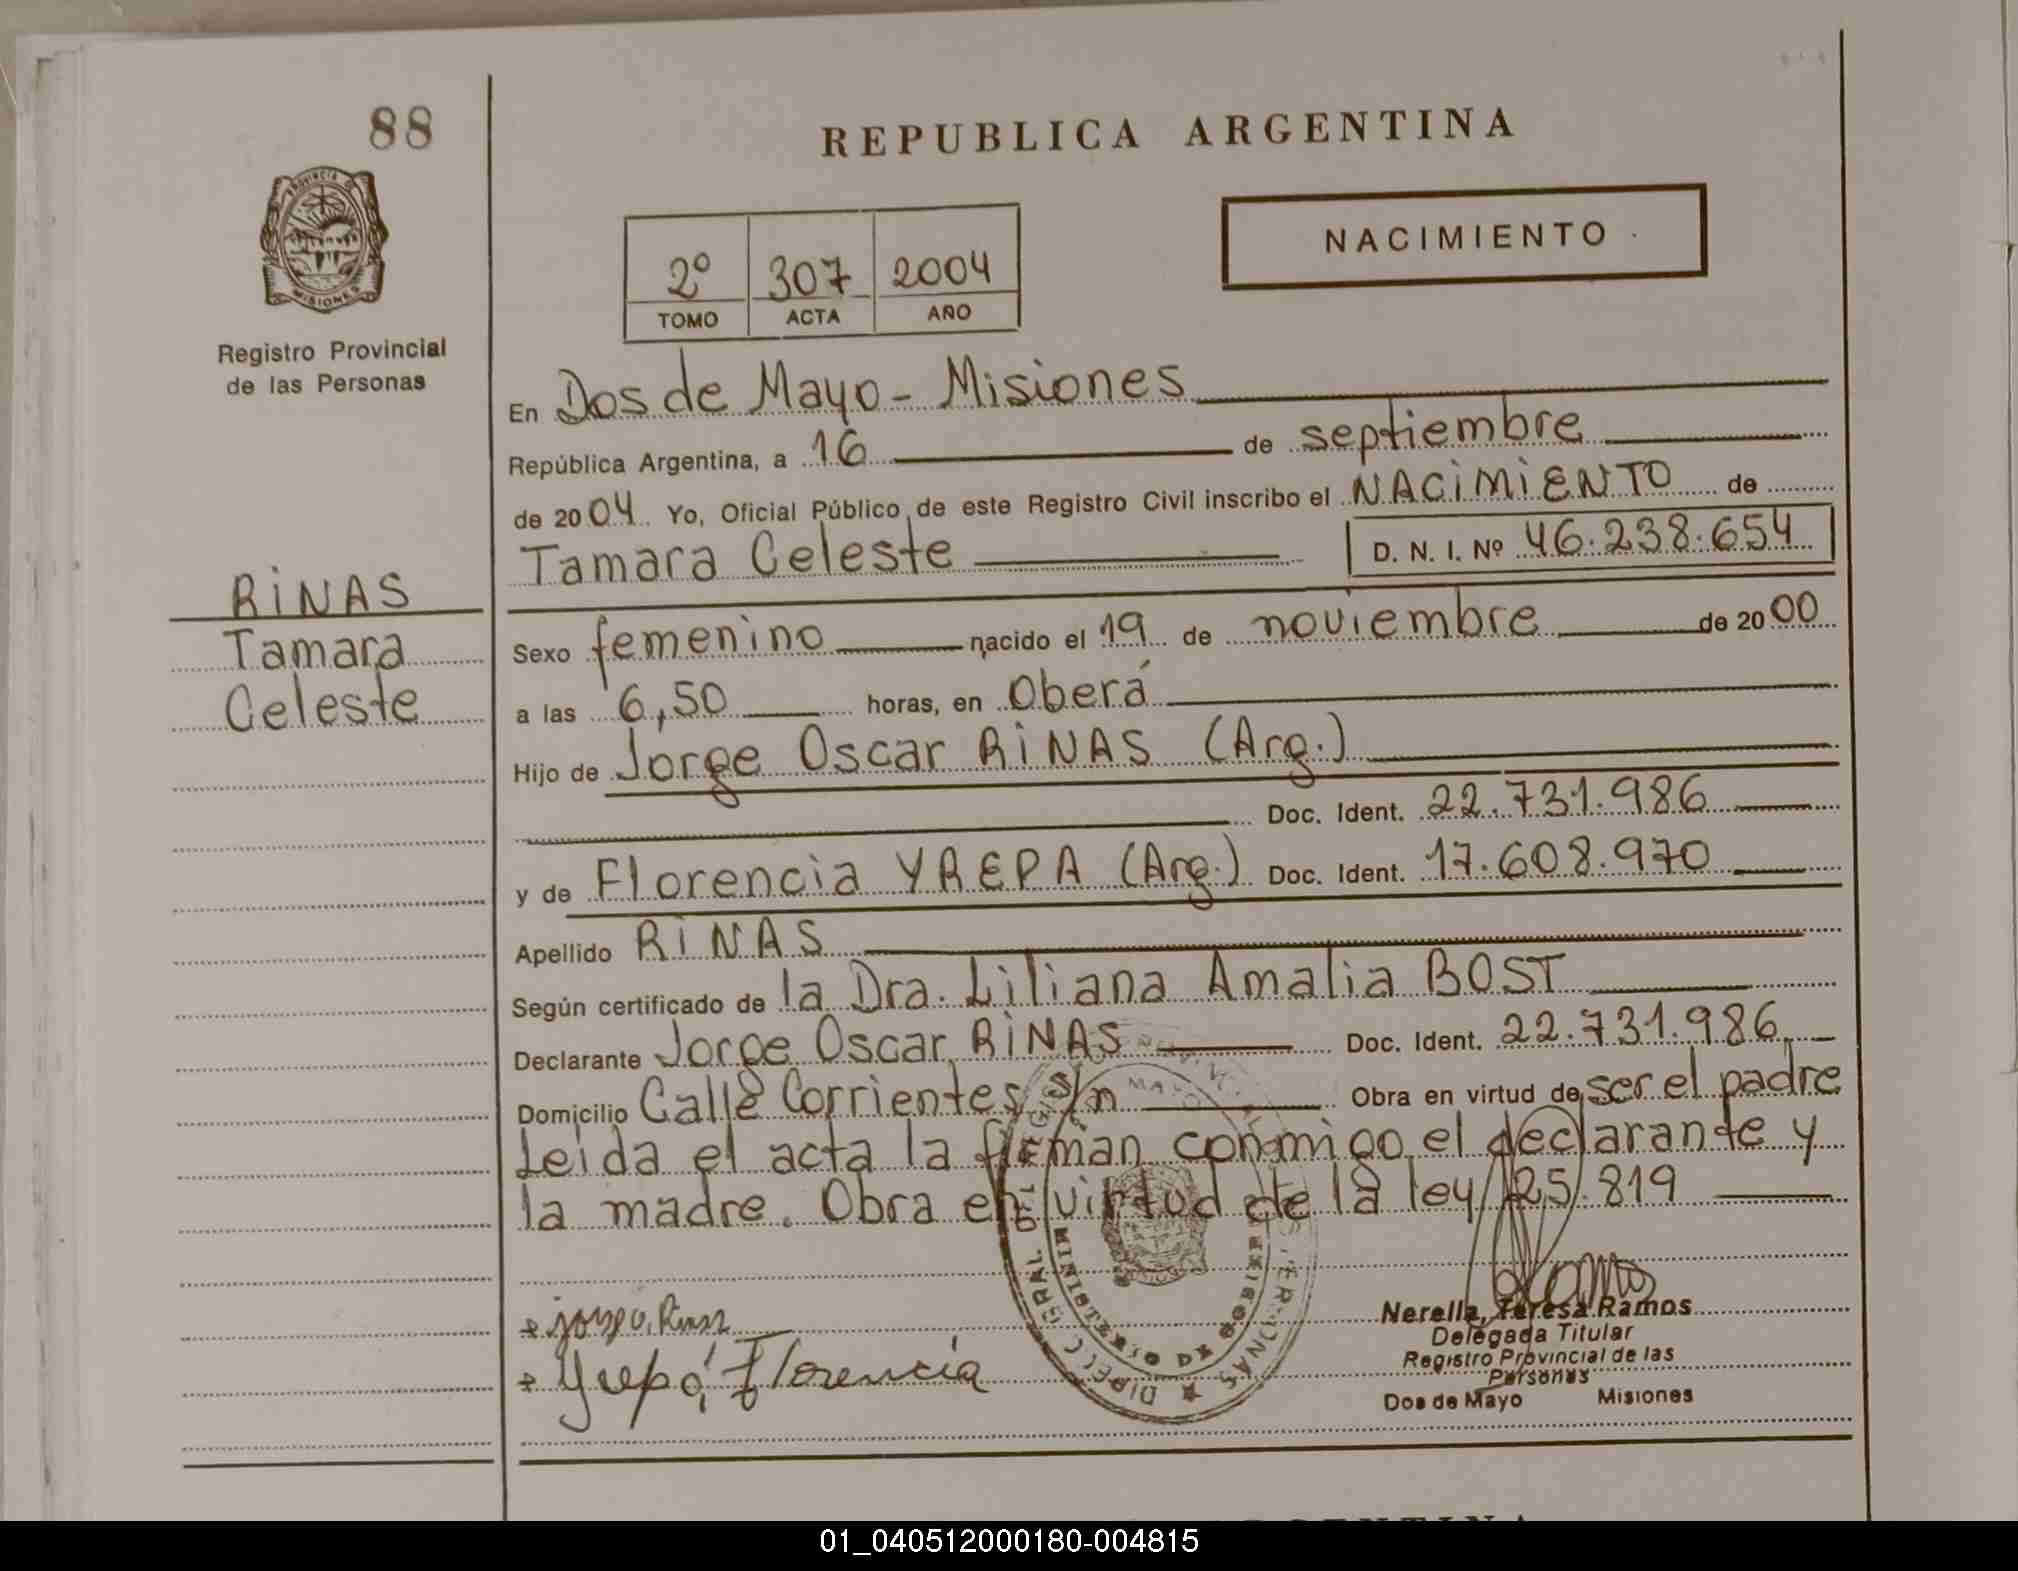 88
REPUBLICA ARGENTINA
PROVINCIA DE
MISIONES
Registro Provincial
de las Personas
2º 307 2004
TOMO ACTA AÑO
NACIMIENTO
En Dos de Mayo - Misiones
República Argentina, a 16 de septiembre
de 2004 Yo, Oficial Público de este Registro Civil inscribo el NACiMiENTO de
Tamara Celeste D. N. I. Nº 46.238.654
RiNAS
Tamara
Celeste
Sexo femenino nacido el 19 de noviembre de 2000
a las 6,50 horas, en Oberá
Hijo de Jorge Oscar RiNAS (Arg.)
Doc. Ident. 22.731.986
y de Florencia YREPA (Arg.) Doc. Ident. 17.608.970
Apellido RiNAS
Según certificado de la Dra. Liliana Amalia BOST
Declarante Jorge Oscar RiNAS Doc. Ident. 22.731.986
Domicilio Calle Corrientes s/n Obra en virtud de ser el padre
Leida el acta la firman conmigo el declarante y
la madre. Obra en virtud de la ley 25.819
Jorge O. Rinas
Yrepa Florencia
MINISTERIO DE GOBIERNO
Nerella, Teresa Ramos
Delegada Titular
Registro Provincial de las
Personas
Dos de Mayo Misiones
01_040512000180-004815